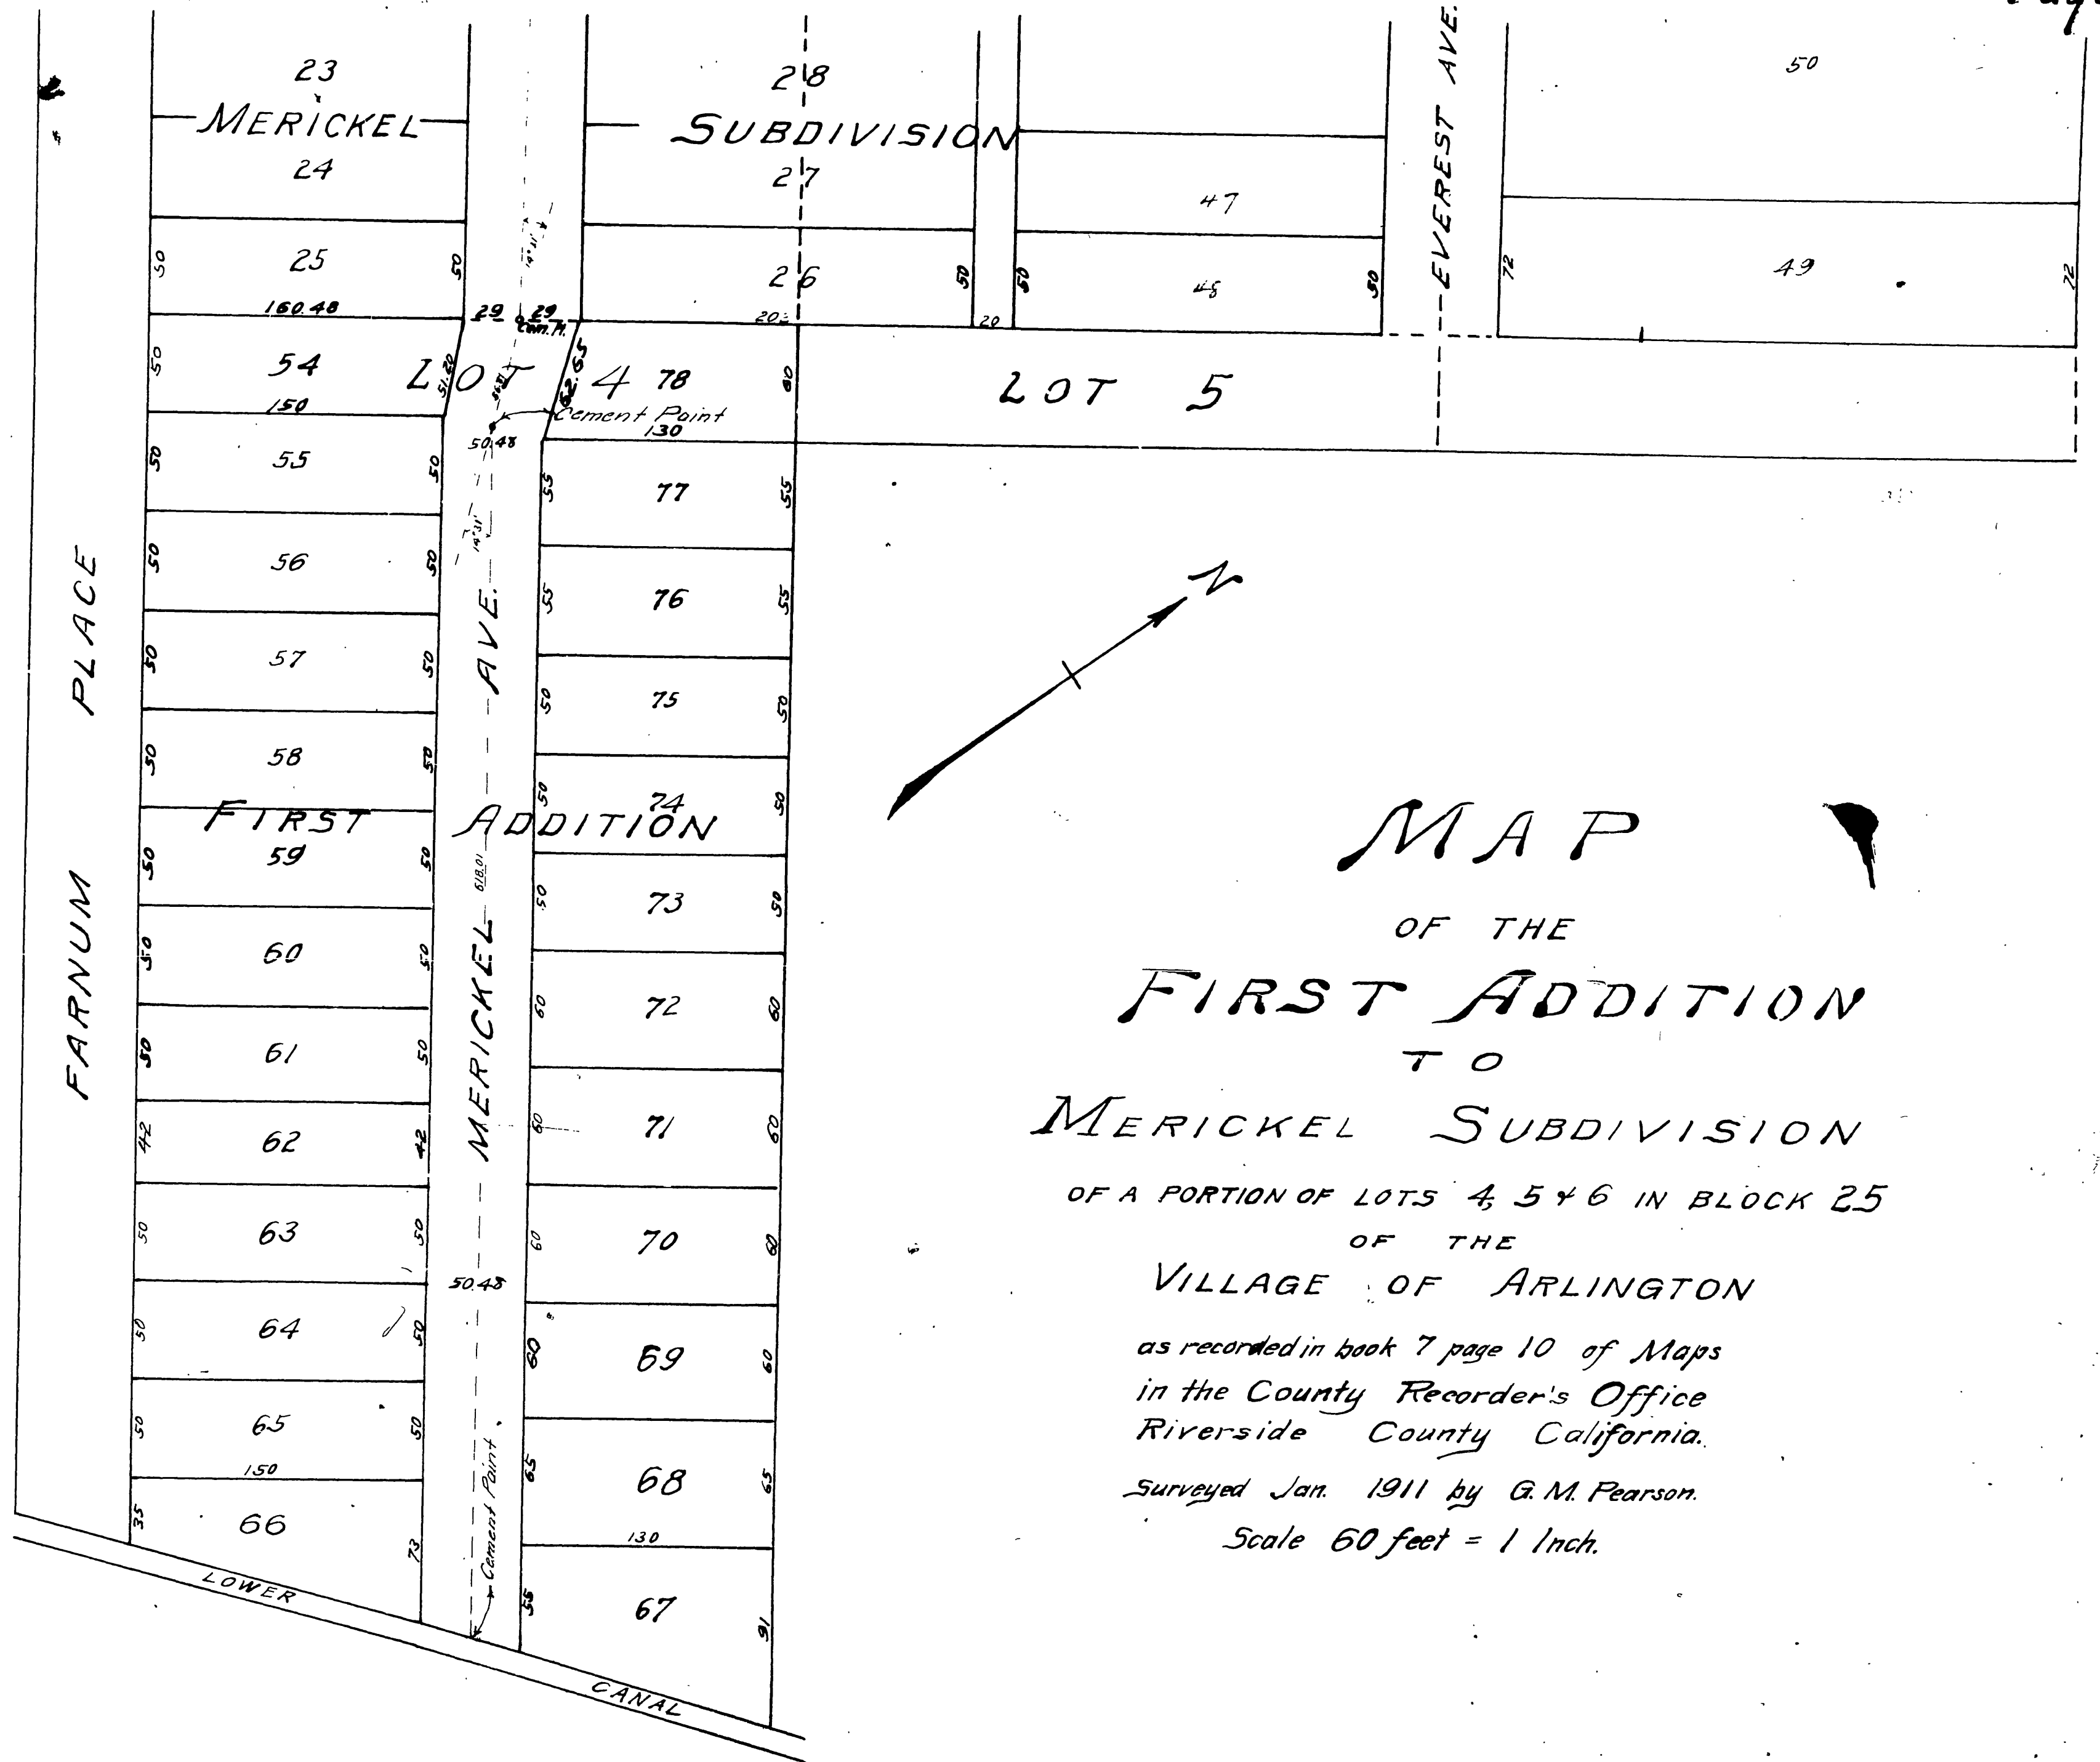 23
MERICKEL
24
28
SUBDIVISION
27
EVEREST AVE.
50
47
50
25
50
160.48
29
29
Cem. M.
26
50
20
20
50
48
50
72
49
72
50
54
150
51.20
LOT 4
62.65
78
60
Cement Point
130
LOT 5
50.48
50
55
50
55
77
55
50
56
50
14°31'
55
76
55
50
57
50
50
75
50
50
58
50
50
74
50
FIRST ADDITION
50
59
50
618.01
50
73
50
50
60
50
60
72
60
50
61
50
60
71
60
42
62
42
50
63
50
60
70
60
50.48
50
64
50
60
69
60
50
65
50
150
65
68
65
130
35
66
73
Cement Point
55
67
91
FARNUM PLACE
MERICKEL AVE.
LOWER CANAL
N
MAP
OF THE
FIRST ADDITION
TO
MERICKEL SUBDIVISION
OF A PORTION OF LOTS 4, 5 & 6 IN BLOCK 25
OF THE
VILLAGE OF ARLINGTON
as recorded in book 7 page 10 of Maps
in the County Recorder's Office
Riverside County California.
Surveyed Jan. 1911 by G. M. Pearson.
Scale 60 feet = 1 Inch.